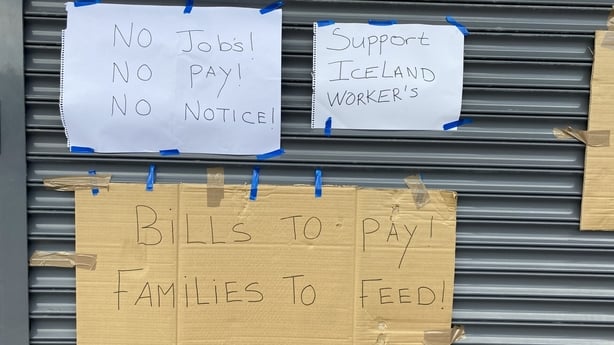 NO Jobs!
NO PAY!
NO NOTICE!
Support
ICELAND
WORKER'S
BiLLS TO PAY!
FAMiLiES TO FEED!